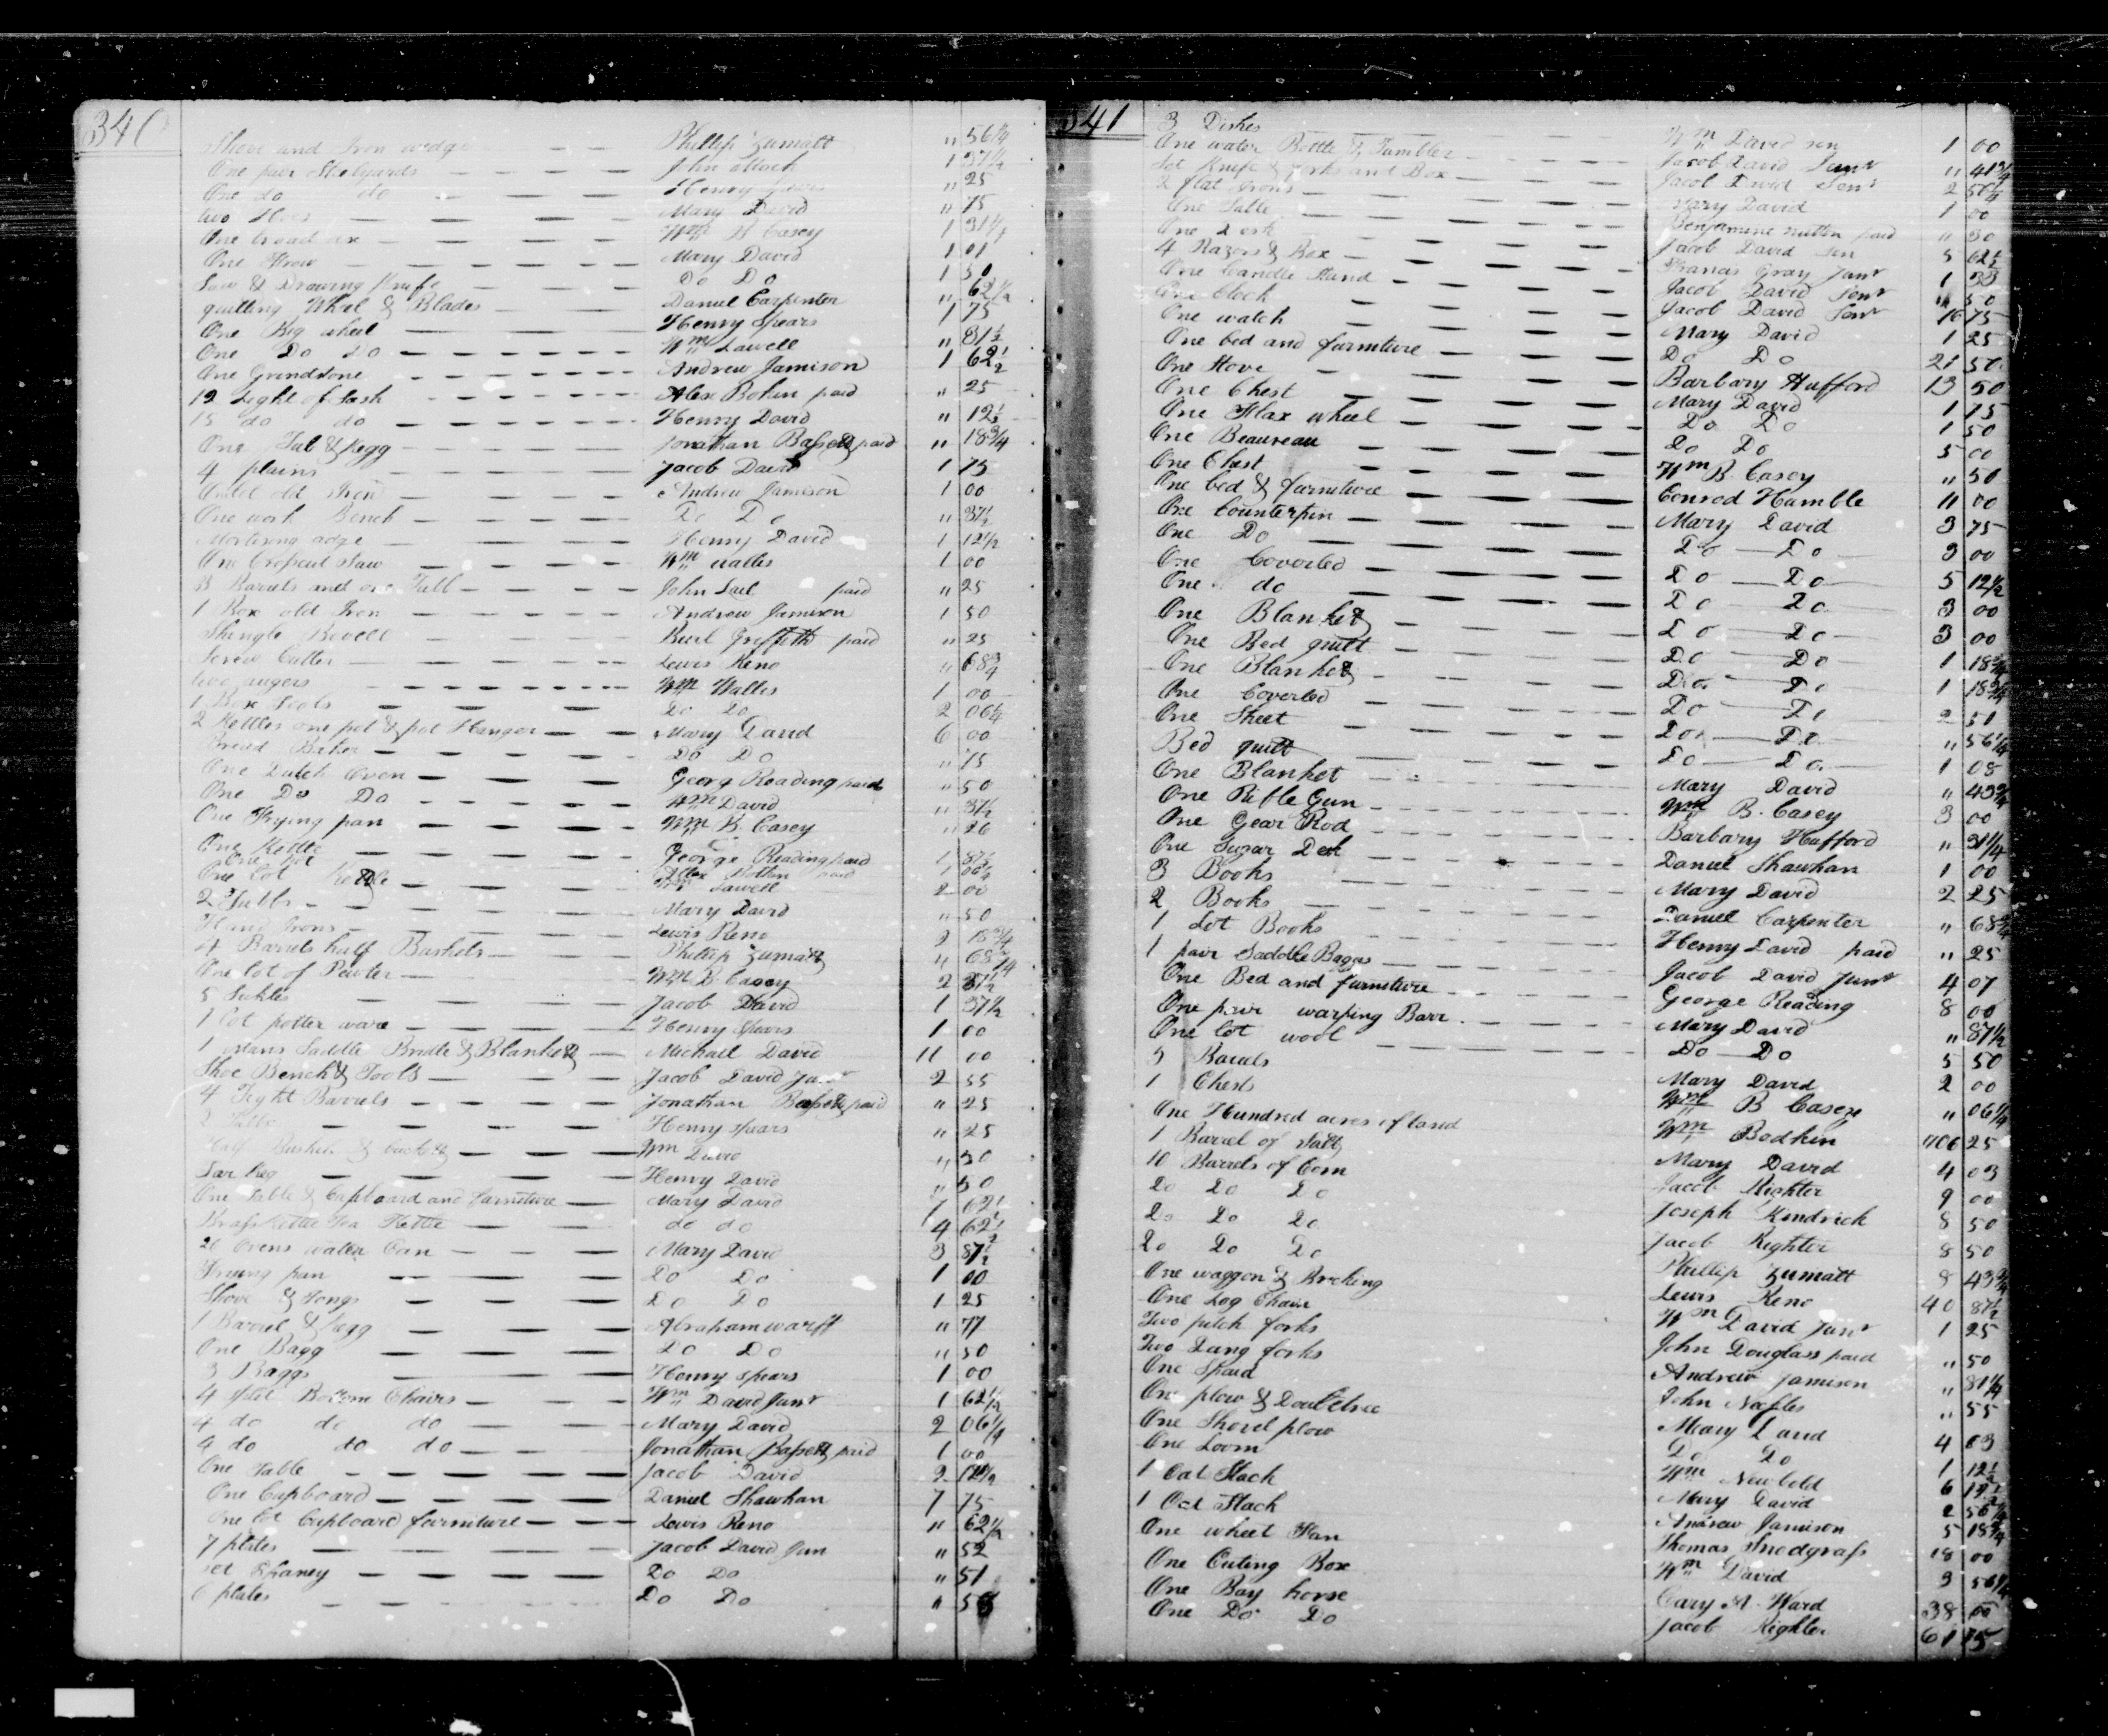 340
Shove and Iron wedge Phillip Zumalt " 56¼
One pair Stelyards John 1 37½
One do do Henry " 25
two Hoes Mary David " 75
One broad ax Wm B Casey 1 31¼
One Mary David 1 01
Saw & Drawing Knife Do Do 1 50
quilling Wheel & Blades Daniel Carpenter " 62½
One Big wheel Henry Spears 1 75
One Do Do Wm Sawell " 81½
One Grindstone Andrew Jamison 1 62½
12 Light of Sash Alex Bohun paid " 25
15 do do Henry David " 12½
One Tub & kegg Jonathan Bassett paid " 18¾
4 plains Jacob David 1 75
old Iron Andrew Jamison 1 00
One work Bench Do Do " 37½
Mortising adze Henry David 1 12½
One Cropcut Saw Wm Walles 1 00
3 Barrels and one Tubb John Sail paid " 25
1 Box old Iron Andrew Jamison 1 50
Shingle Bevell Burl Griffith paid " 25
Screw Cutter Lewis Reno " 68¾
two augers Wm Walles 1 00
1 Box Tools Do Do 2 06¼
2 Kettles one pot & pot Hanger Mary David 6 00
Bread Baker Do Do " 75
One Dutch Oven Georg Reading paid " 50
One Do Do Wm David " 37½
One Frying pan Wm B. Casey " 26
One Kettle George Reading paid 1 87½
One Pot Alex paid 1 06¼
One lot Kettle Wm Sawell 2 00
2 Tubbs Mary David " 50
Irons Lewis Reno 3 18¾
4 Barrels half Bushels Phillip Zumalt " 68¾
One lot of Pewter Wm B. Casey 2 37½
5 Sickles Jacob David 1 37½
1 lot potter ware Henry Spears 1 00
1 Mans Saddle Bridle & Blanket Michael David 11 00
Shoe Bench & Tools Jacob David Junr 2 55
4 Tight Barrels Jonathan Bassett paid " 25
2 Tubbs Henry Spears " 25
Half Bushel & buckett Wm David " 50
Tar Keg Henry David " 50
One Table & Cupboard and furniture Mary David 7 62½
Brass Kettle Tea Kettle do do 4 62½
2 Ovens water Can Mary David 3 87½
Frying pan Do Do 1 00
Shove & Tongs Do Do 1 25
1 Barrel & kegg Abraham warff " 77
One Bagg Do Do " 50
3 Baggs Henry Spears 1 00
4 Split Bottom Chairs Wm David Junr 1 62½
4 do do do Mary David 2 06¼
4 do do do Jonathan Bassett paid 1 00
One Table Jacob David 2 12½
One Cupboard Daniel Shawhan 7 75
One lot Cupboard furniture Lewis Reno " 62½
7 plates Jacob David Jun " 52
set Chaney Do Do " 51
6 plates Do Do " 58
341
3 Dishes Wm Davidson 1 00
One water Bottle & Tumbler Jacob David Senr " 41¾
Set Knife & forks and Box Jacob David Senr 2 56¼
2 flat Irons Mary David 1 00
One Table Benjamine nutter paid " 30
One Desk Jacob David Sen 5 62½
4 Razors & Box Francis Gray Junr 1 33
One Candle Stand Jacob David Senr " 50
One Clock Jacob David Senr 16 75
One watch Mary David 1 25
One bed and furniture Do Do 21 50
One Stove Barbary Hufford 13 50
One Chest Mary David 1 75
One Flax wheel Do Do 1 50
One Beaureau Do Do 5 00
One Chest Wm B. Casey " 50
One bed & furniture Conrod Humble 11 00
One Counterpin Mary David 3 75
One Do Do Do 3 00
One Coverled Do Do 5 12½
One do Do Do 3 00
One Blanket Do Do 3 00
One Bed quilt Do Do 1 18¾
One Blanket Do Do 1 18¾
One Coverled Do Do 2 51
One Sheet Do Do " 56¼
Bed quilt Do Do 1 08
One Blanket Mary David " 43¾
One Rifle Gun Wm B. Casey 3 00
One Gear Rod Barbary Hufford " 31¼
One Sugar Desk Daniel Shawhan 1 00
3 Books Mary David 2 25
2 Books Daniel Carpenter " 68¾
1 Lot Books Henry David paid " 25
1 pair Saddle Baggs Jacob David Junr 4 07
One Bed and furniture George Reading 8 00
One pair warping Barr Mary David " 87½
One lot wool Do Do 5 50
5 Barrels Mary David 2 00
1 Chest Wm B Casey " 06¼
One Hundred acres of land Wm Bodkin 406 25
1 Barrel of Salt Mary David 4 03
10 Barrels of Corn Jacob Righter 9 00
Do Do Do Joseph Kendrick 8 50
Do Do Do Jacob Righter 8 50
Do Do Do Phillip Zumalt 8 43¾
One waggon & Brecking Lewis Reno 40 87½
One Log Chain Wm David Junr 1 25
Two pitch forks John Douglass paid " 50
Two Dung forks Andrew Jamison " 81¼
One Spaid John Naffles " 55
One plow & Doubletree Mary David 4 03
One Shovel plow Do Do 1 12½
One Loom Wm Newbold 6 12½
1 Oat Stack Mary David 2 56¼
1 Oat Stack Andrew Jamison 5 18¾
One wheet Fan Thomas Snodgrass 18 00
One Cuting Box Wm David 3 56¼
One Bay horse Cary A. Ward 38 00
One Do Do Jacob Righter 61 75